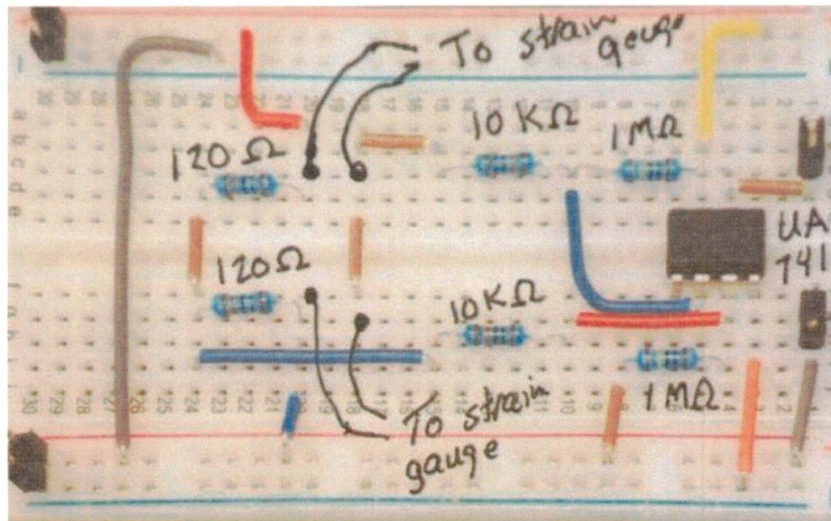 To strain
gauge
10 KΩ
1MΩ
120Ω
UA
741
120Ω
10KΩ
1MΩ
To strain
gauge